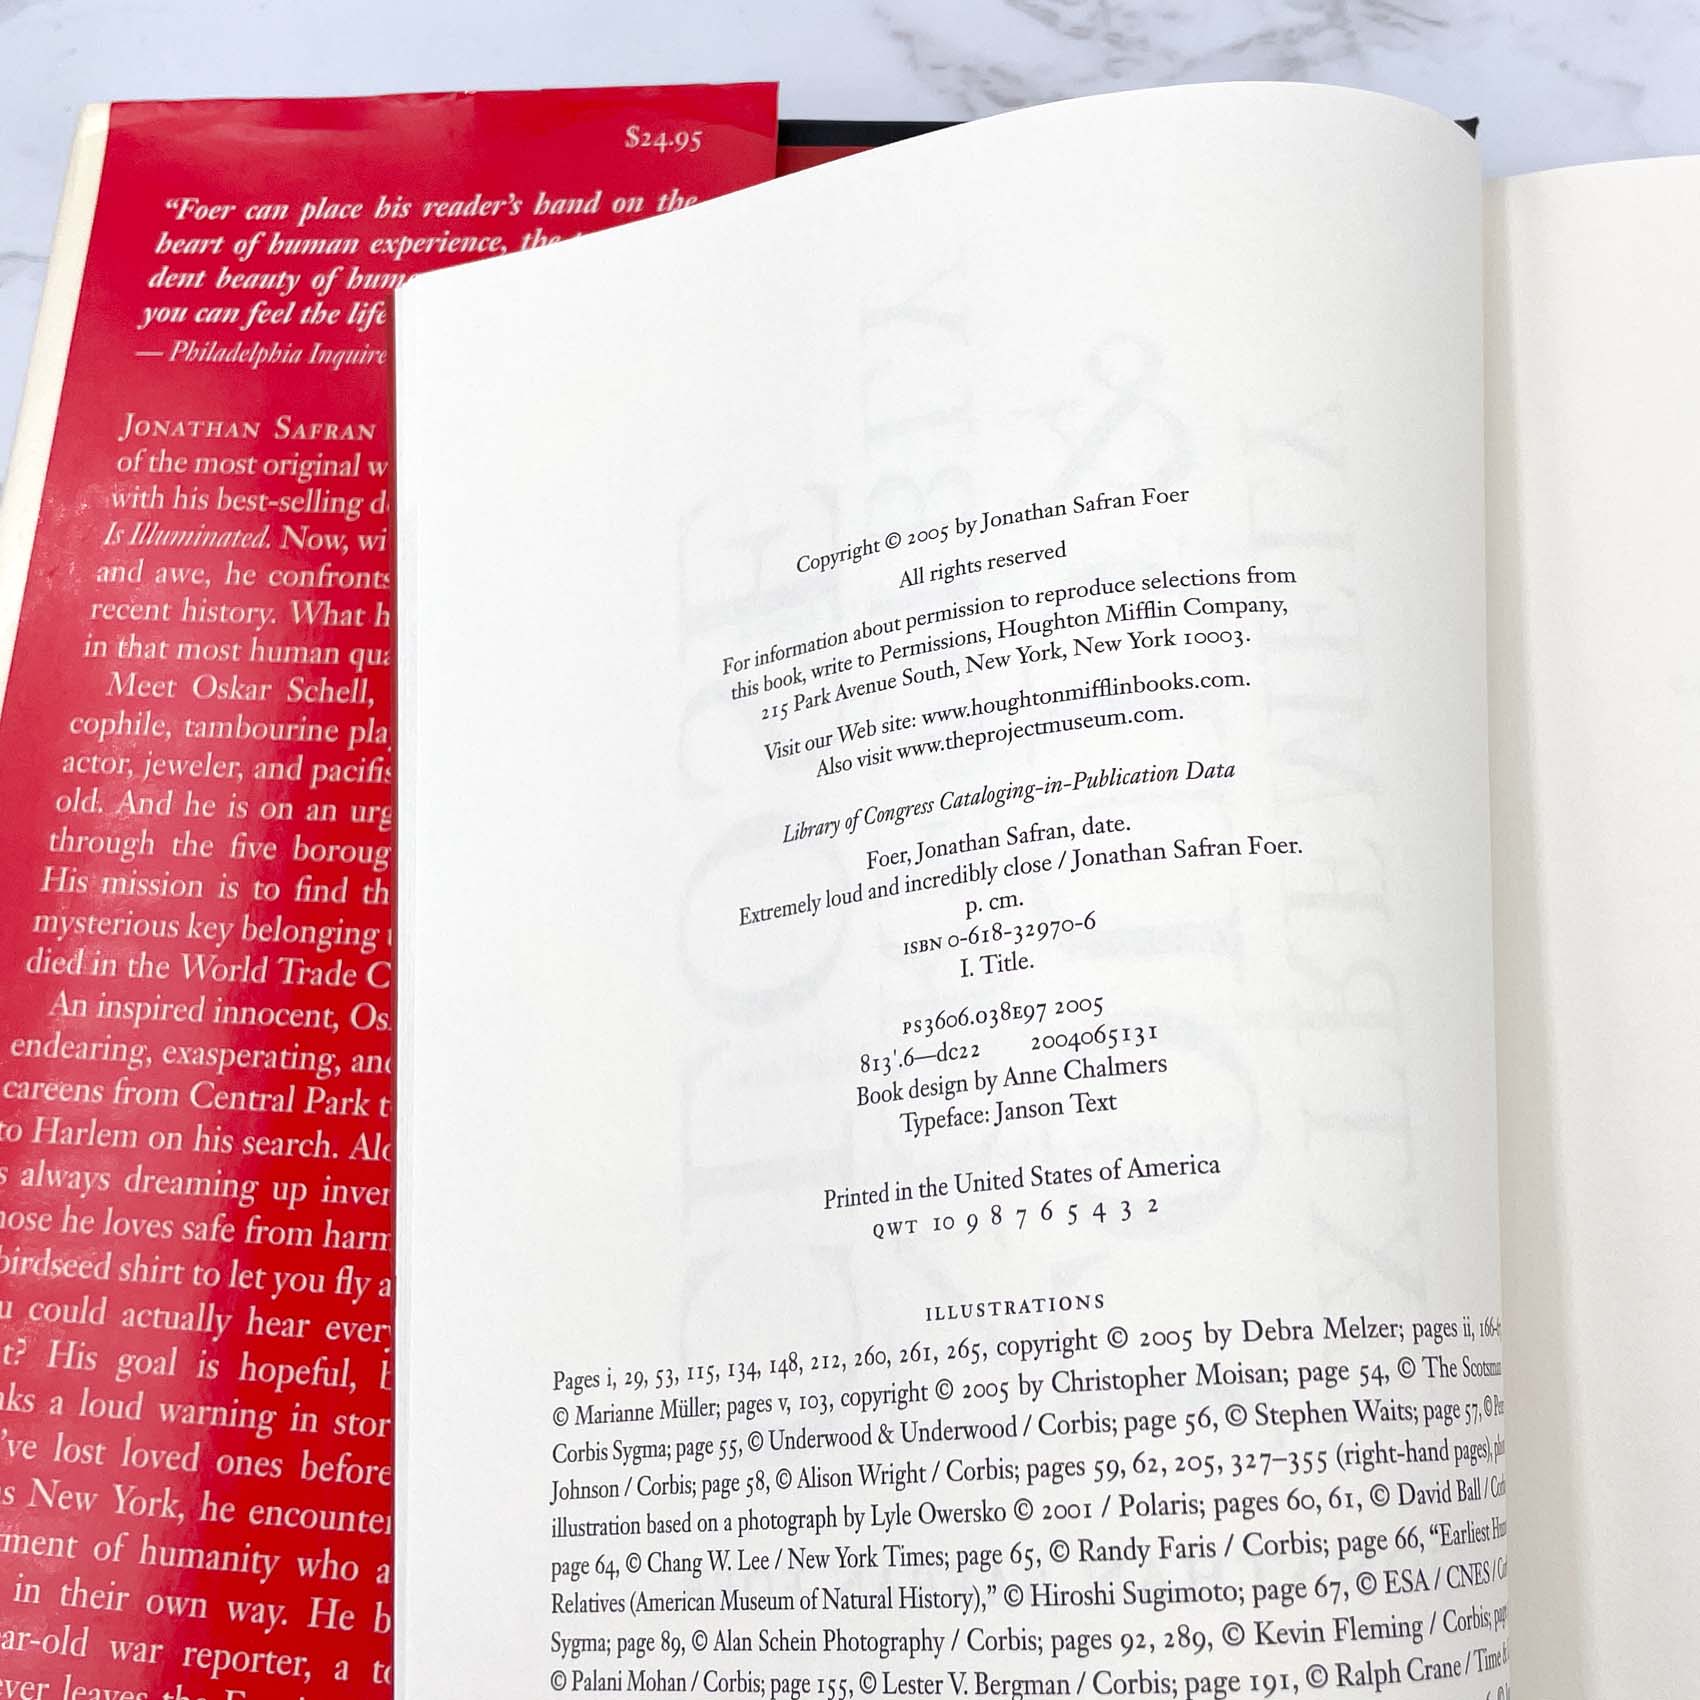 $24.95
“Foer can place his reader’s hand on the
heart of human experience, the
dent beauty of
you can feel the life
— Philadelphia
JONATHAN SAFRAN
of the most original
with his best-selling
Is Illuminated. Now,
and awe, he confronts
recent history. What
in that most human
Meet Oskar Schell,
cophile, tambourine
actor, jeweler, and
old. And he is on an
through the five
His mission is to find
mysterious key belonging
died in the World Trade
An inspired innocent,
endearing, exasperating,
careens from Central Park
to Harlem on his search.
always dreaming up
he loves safe from
birdseed shirt to let you fly
could actually hear
His goal is hopeful,
a loud warning in
’ve lost loved ones before
New York, he
of humanity who
in their own way. He
war reporter, a
leaves the
Copyright © 2005 by Jonathan Safran Foer
All rights reserved
For information about permission to reproduce selections from
this book, write to Permissions, Houghton Mifflin Company,
215 Park Avenue South, New York, New York 10003.
Visit our Web site: www.houghtonmifflinbooks.com.
Also visit www.theprojectmuseum.com.
Library of Congress Cataloging-in-Publication Data
Foer, Jonathan Safran, date.
Extremely loud and incredibly close / Jonathan Safran Foer.
p. cm.
ISBN 0-618-32970-6
I. Title.
PS3606.038E97 2005
813'.6—dc22 2004065131
Book design by Anne Chalmers
Typeface: Janson Text
Printed in the United States of America
QWT 10 9 8 7 6 5 4 3 2
ILLUSTRATIONS
Pages i, 29, 53, 115, 134, 148, 212, 260, 261, 265, copyright © 2005 by Debra Melzer; pages ii,
© Marianne Müller; pages v, 103, copyright © 2005 by Christopher Moisan; page 54, © The
Corbis Sygma; page 55, © Underwood & Underwood / Corbis; page 56, © Stephen Waits; page 57, ©
Johnson / Corbis; page 58, © Alison Wright / Corbis; pages 59, 62, 205, 327–355 (right-hand pages),
illustration based on a photograph by Lyle Owersko © 2001 / Polaris; pages 60, 61, © David Ball /
page 64, © Chang W. Lee / New York Times; page 65, © Randy Faris / Corbis; page 66, “Earliest
Relatives (American Museum of Natural History),” © Hiroshi Sugimoto; page 67, © ESA / CNES /
Sygma; page 89, © Alan Schein Photography / Corbis; pages 92, 289, © Kevin Fleming / Corbis;
© Palani Mohan / Corbis; page 155, © Lester V. Bergman / Corbis; page 191, © Ralph Crane / Time